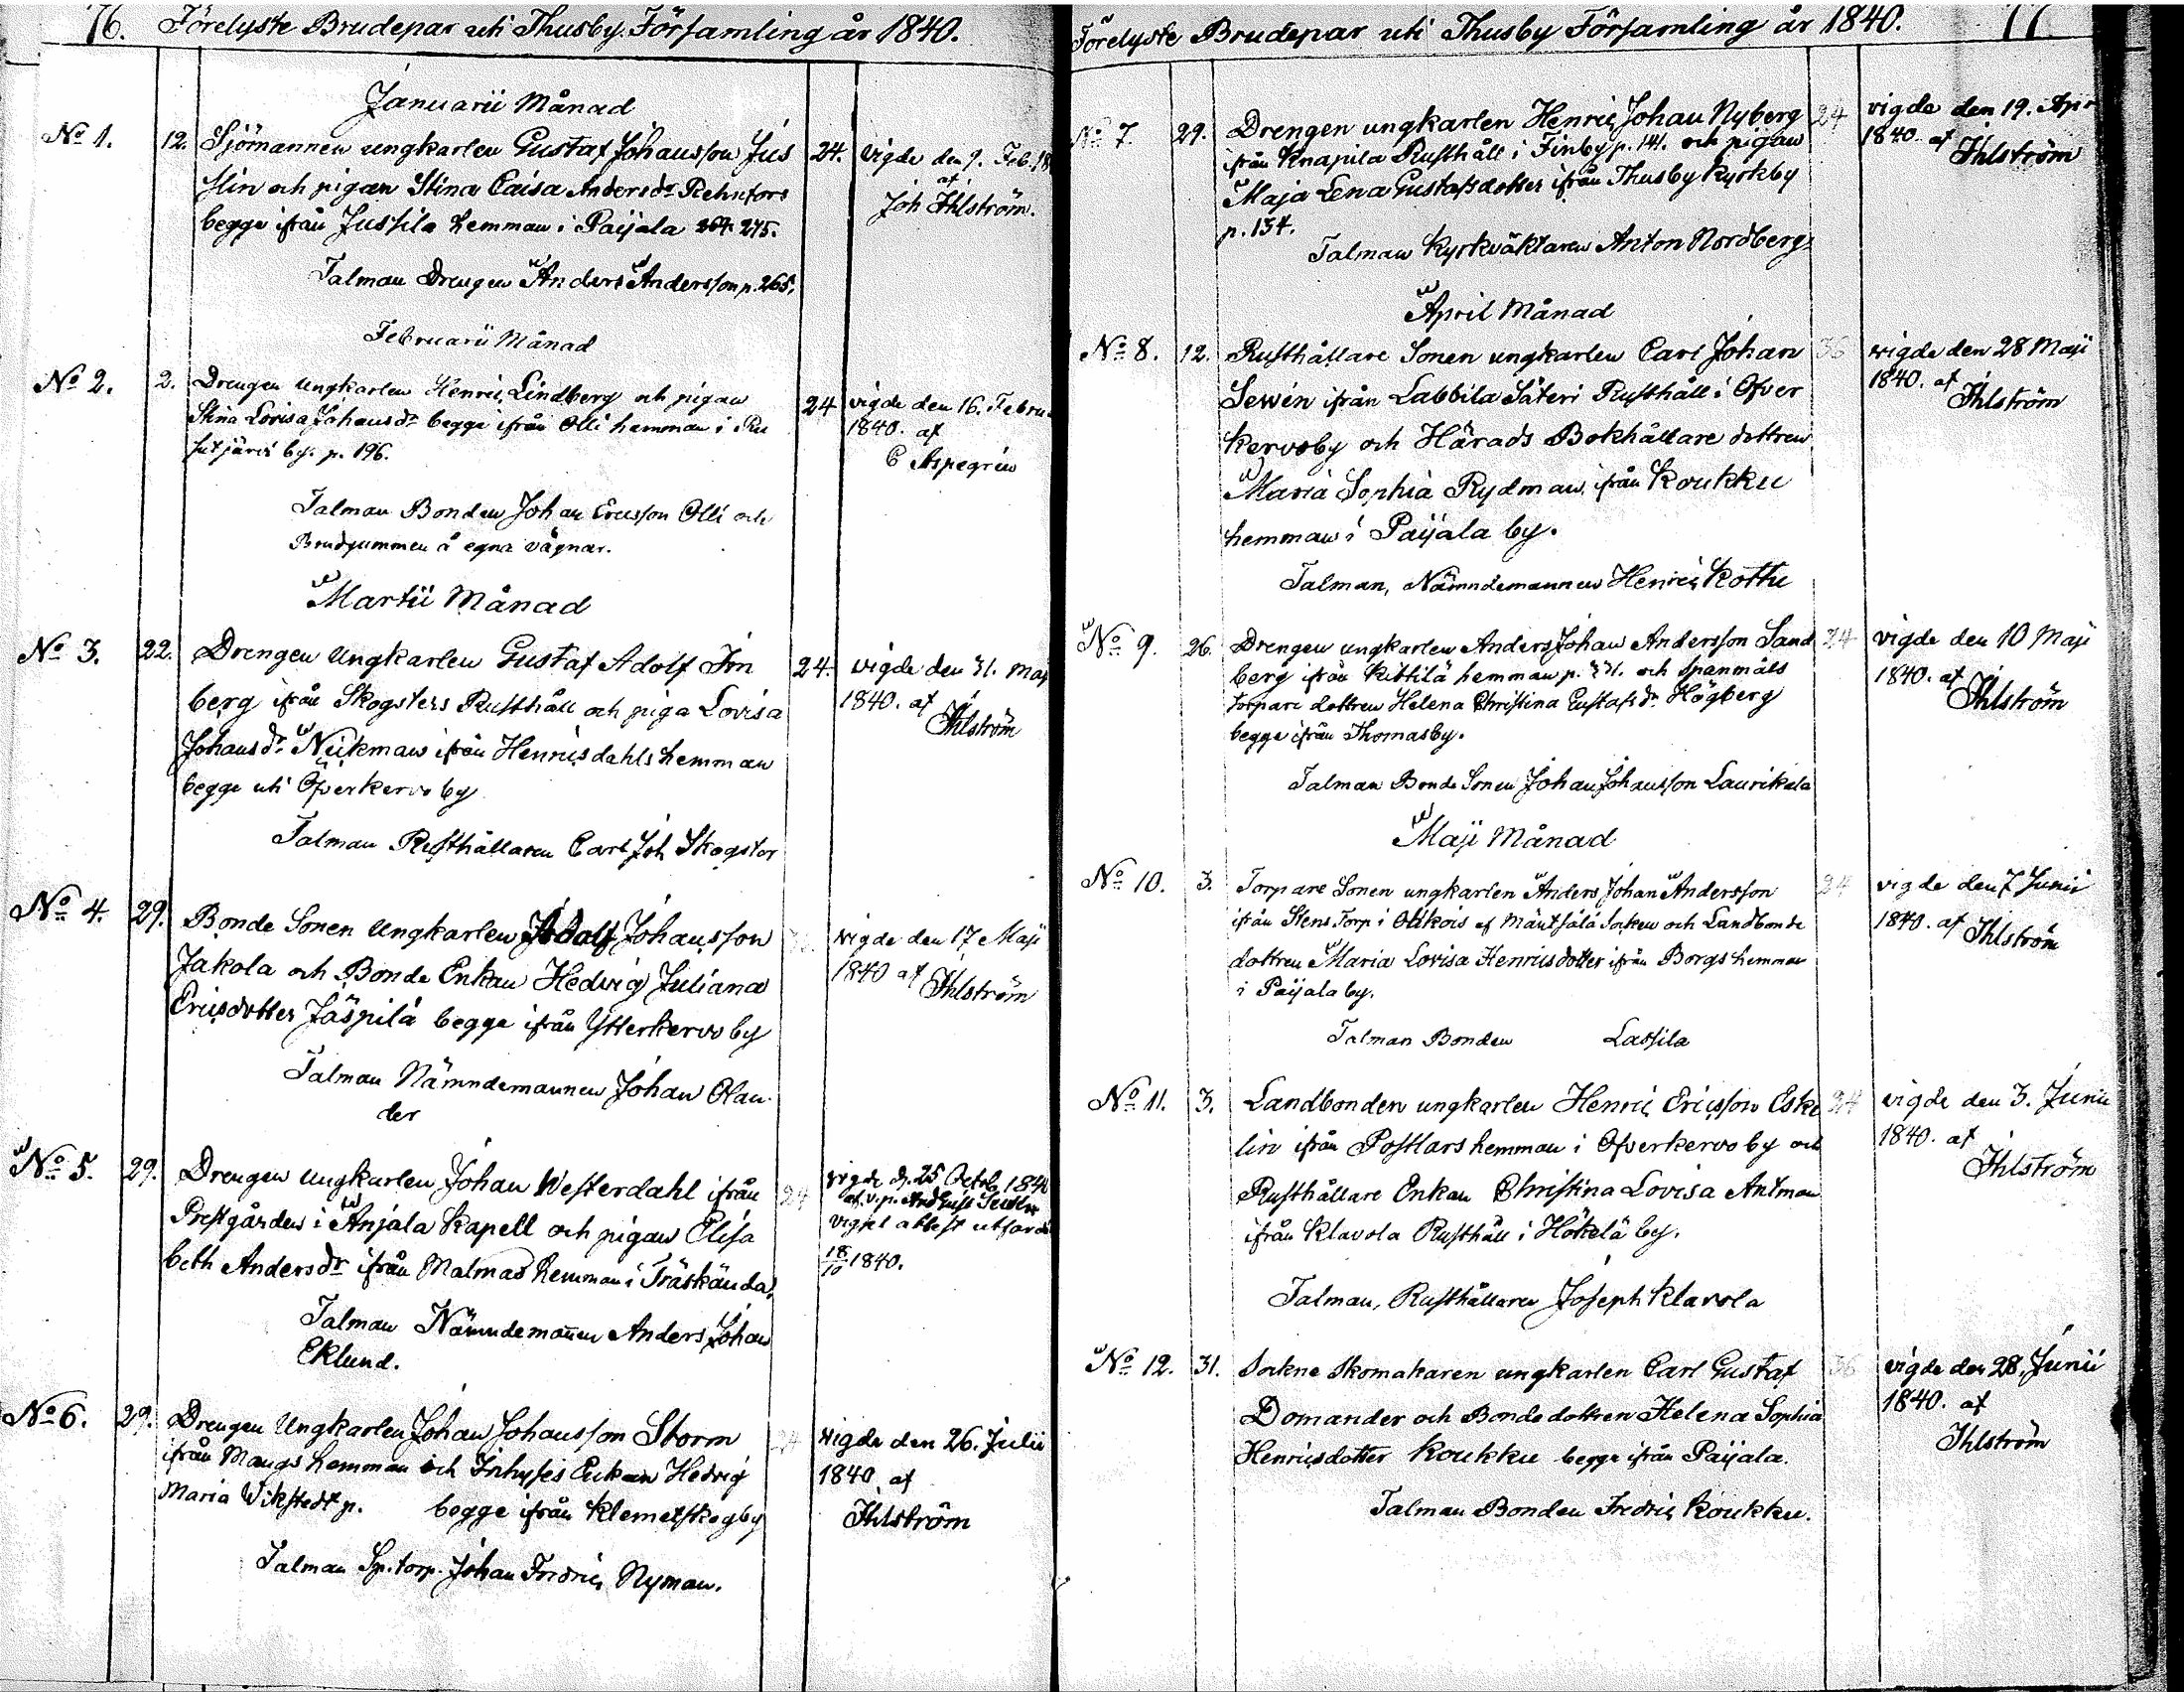 76. Förelyste Brudepar uti Thusby Församling år 1840.
Januarii Månad
No 1. 12. Sjömannen ungkarlen Gustaf Johansson Jus 24. vigde den 9. Feb. 18
slin och pigan Stina Caisa Andersdr Rehnfors af
begge ifrån Jussila hemman i Paijala 275. Joh Ihlström.
Talman Drengen Anders Andersson p. 265.
Februarii Månad
No 2. 2. Drengen ungkarlen Henric Lindberg och pigan 24 vigde den 16. Febru
Stina Lovisa Johansdr begge ifrån Olli hemman i Ru 1840. af
sutjärvi by. p. 196. C Aspegrén
Talman Bonden Johan Ericsson Olli och
Brudgummen å egna vägnar.
Martii Månad
No 3. 22. Drengen Ungkarlen Gustaf Adolf Im 24. vigde den 31. Maji
berg ifrån Skogsters Rusthåll och piga Lovisa 1840. af
Johansdr Neikman ifrån Henricsdahls hemman Ihlström
begge uti Öfverkervo by
Talman Rusthållaren Carl Joh Skogster
No 4. 29. Bonde Sonen Ungkarlen Adolf Johansson vigde den 17 Maji
Jakola och Bonde Enkan Hedvig Juliana 1840 af
Ericsdotter Jäspilä begge ifrån Ytterkervo by Ihlström
Talman Nämndemannen Johan Olan
der
No 5. 29. Drengen ungkarlen Johan Westerdahl ifrån 24 vigde d. 25 Octob. 1840
Prestgården i Anjala Kapell och pigan Elisa af v.p.
beth Andersdr ifrån Malmas hemman i Träskända. vigsel attest utfärd
Talman Nämndemannen Anders Johan 18/10 1840.
Eklund.
No 6. 29. Drengen Ungkarlen Johan Johansson Storm 24 vigde den 26. Julii
ifrån Mangs hemman och Inhyses Enkan Hedvig 1840 af
Maria Wikstedt p. begge ifrån Klemetskog by Ihlström
Talman Sp. torp. Johan Fredric Nyman.
Förelyste Brudepar uti Thusby Församling år 1840. 77.
No 7. 29. Drengen ungkarlen Henric Johan Nyberg 24 vigde den 19. Apr
ifrån Knapila Rusthåll i Finby p. 141. och pigan 1840. af
Maja Lena Gustafsdotter ifrån Thusby Kyrkby Ihlström
p. 134.
Talman Kyrkväktaren Anton Nordberg
April Månad
No 8. 12. Rusthållare Sonen ungkarlen Carl Johan 36 vigde den 28 Maji
Sewén ifrån Labbila Säteri Rusthåll i Öfver 1840. af
kervoby och Härads Bokhållare dottren Ihlström
Maria Sophia Rydman, ifrån Koukku
hemman i Paijala by.
Talman, Nämndemannen Henric Kottu
No 9. 26. Drengen ungkarlen Anders Johan Andersson Sand 24 vigde den 10 Maji
berg ifrån Kittilä hemman p. 331. och Spanmåls 1840. af
torpare dottren Helena Christina Gustafsdr Högberg Ihlström
begge ifrån Thomasby.
Talman Bonde Sonen Johan Johansson Laurikala
Maji Månad
No 10. 3. Torpare Sonen ungkarlen Anders Johan Andersson 24 vigde den 7 Junii
ifrån Stens Torp i Ohkois af Mäntsälä Socken och Landbonde 1840. af
dottren Maria Lovisa Henricsdotter ifrån Borgs hemman Ihlström
i Paijala by.
Talman Bonden Lassila
No 11. 3. Landbonden ungkarlen Henric Ericsson Eske 24 vigde den 3. Junii
lin ifrån Postlars hemman i Öfverkervo by och 1840. af
Rusthållare Enkan Christina Lovisa Antman Ihlström
ifrån Klavola Rusthåll i Hökelä by.
Talman, Rusthållaren Joseph Klavola
No 12. 31. Sokne Skomakaren ungkarlen Carl Gustaf 36 vigde den 28. Junii
Domander och Bonde dottren Helena Sophia 1840. af
Henricsdotter Koukku begge ifrån Paijala. Ihlström
Talman Bonden Fredric Koukku.